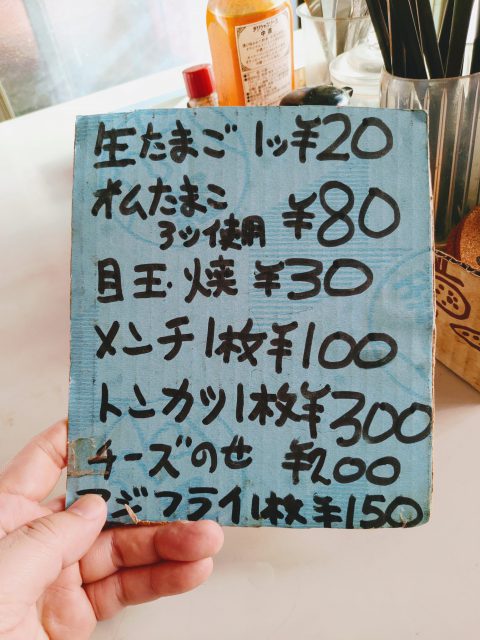 生たまご 1ッ¥20
オムたまご
3ツ使用 ¥80
目玉焼 ¥30
メンチ1枚¥100
トンカツ1枚¥300
チーズのせ ¥200
アジフライ1枚¥150